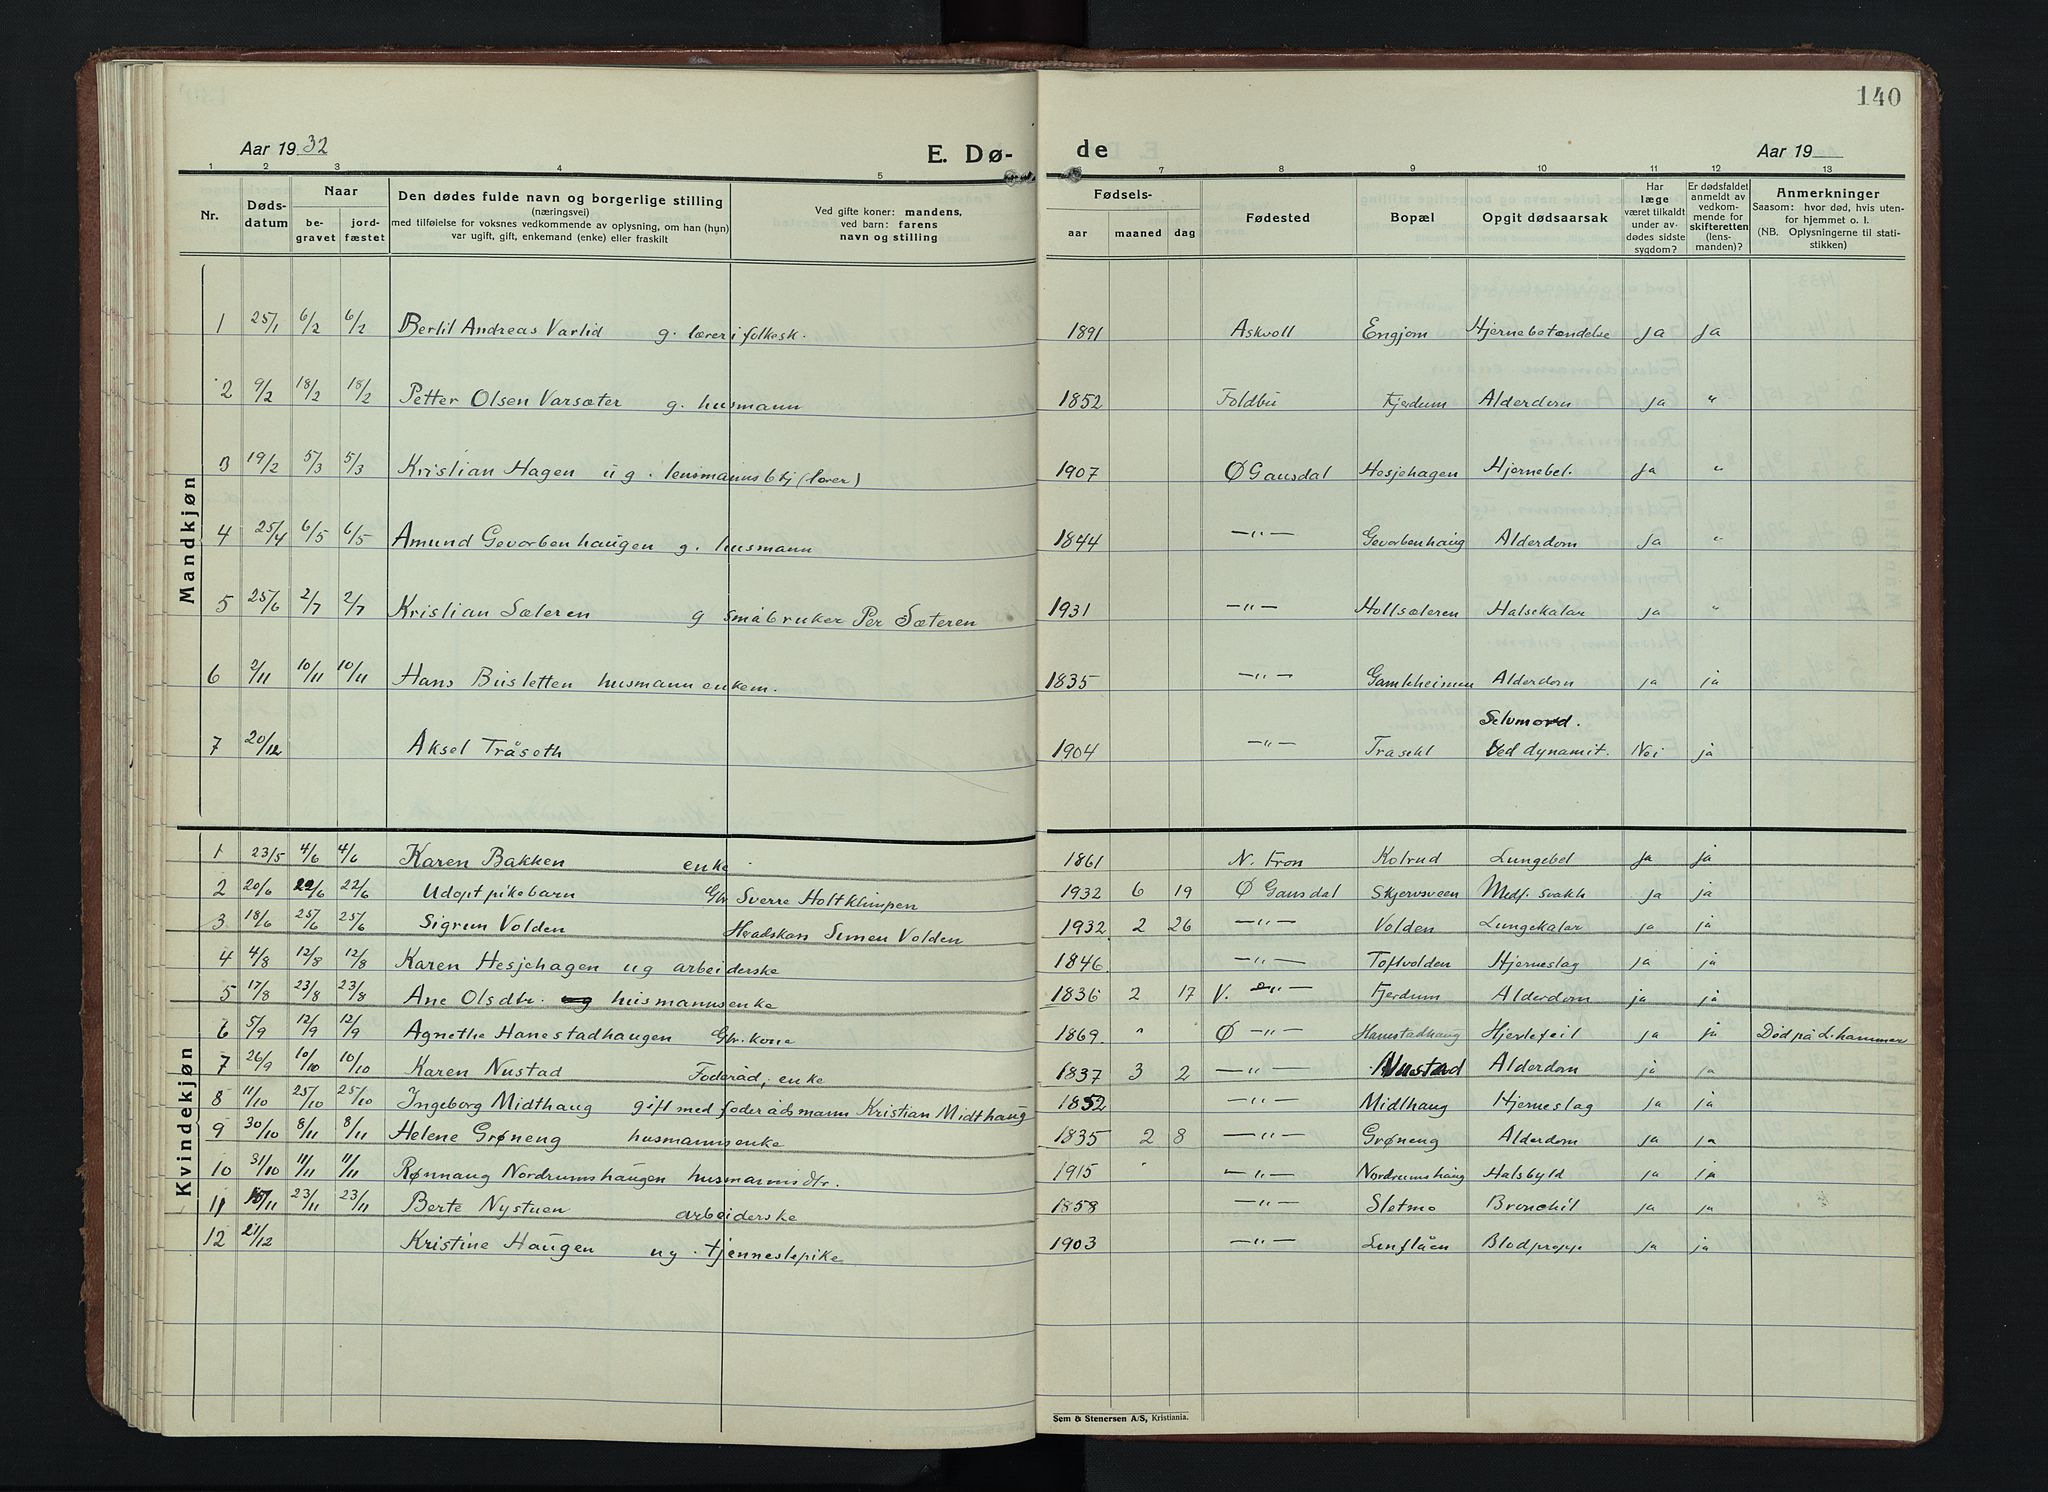 140
Aar 1932 E. Dø- de Aar 19
1 2 3 4 5 6 7 8 9 10 11 12 13
Nr. Dødsdatum Naar begravet jordfæstet
Den dødes fulde navn og borgerlige stilling
(næringsvei)
med tilføielse for voksnes vedkommende av oplysning, om han (hun)
var ugift, gift, enkemand (enke) eller fraskilt
Ved gifte koner: mandens,
ved barn: farens
navn og stilling
Fødsels- aar maaned dag
Fødested Bopæl Opgit dødsaarsak
Har læge været tilkaldt under avdødes sidste sygdom?
Er dødsfaldet anmeldt av vedkommende for skifteretten (lensmanden)?
Anmerkninger
Saasom: hvor død, hvis utenfor hjemmet o. l.
(NB. Oplysningerne til statistikken)
Mandkjøn
1 25/1 6/2 6/2 Bertil Andreas Varlid g. lærer i folkesk. 1891 Askvoll Engjom Hjernebetændelse Ja Ja
2 9/2 18/2 18/2 Petter Olsen Varsæter g. husmann 1852 Foldbu Fjerdum Alderdom Ja "
3 19/2 5/3 5/3 Kristian Hagen ug. lensmannsbtj (lærer) 1907 Ø Gausdal Hesjehagen Hjernebet. Ja "
4 25/4 6/5 6/5 Amund Gevorbenhaugen g. husmann 1844 —"— Gevorbenhaug Alderdom Ja "
5 25/6 2/7 2/7 Kristian Sæteren g småbruker Per Sæteren 1931 —"— Holtsæteren Halsekatar Ja "
6 2/11 10/11 10/11 Hans Bisletten husmann enkem. 1835 —"— Gamleheimen Alderdom ja ja
7 20/12 Aksel Tråseth 1904 —"— Trasehl Selvmord. Ved dynamit. Nei ja
Kvindekjøn
1 23/5 4/6 4/6 Karen Bakken enke 1861 N. Fron Kolrud Lungebet ja ja
2 20/6 22/6 22/6 Udøpt pikebarn Gbr Sverre Holtklimpen 1932 6 19 Ø Gausdal Skjervsveen Medf. svakh ja ja
3 18/6 25/6 25/6 Sigrun Volden Simen Volden 1932 2 26 —"— Volden Lungekatar ja ja
4 4/8 12/8 12/8 Karen Hesjehagen ug arbeiderske 1846 —"— Toftvolden Hjerneslag ja ja
5 17/8 23/8 23/8 Ane Olsdtr. husmannsenke 1836 2 17 V. —"— Fjerdum Alderdom ja ja
6 5/9 12/9 12/9 Agnethe Hanestadhaugen Gbr. kone 1869 " Ø —"— Hanestadhaug Hjertefeil ja ja Død på L.hammer
7 26/9 10/10 10/10 Karen Nustad Føderåd, enke 1837 3 2 —"— Nustad Alderdom ja ja
8 11/10 25/10 25/10 Ingeborg Midthaug gift med føderådsmann Kristian Midthaug 1852 —"— Midthaug Hjerneslag ja ja
9 30/10 8/11 8/11 Helene Grøneng husmannsenke 1835 2 8 —"— Grøneng Alderdom ja ja
10 31/10 11/11 11/11 Rønnaug Nordrumshaugen husmannsdtr. 1915 " —"— Nordrumshaug Halsbyld ja ja
11 15/11 23/11 23/11 Berte Nystuen arbeiderske 1858 —"— Sletmo Bronchit ja ja
12 21/12 Kristine Haugen ug. tjennestepike 1903 —"— Linflåen Blodpropp ja ja
Sem & Stenersen A/S, Kristiania.